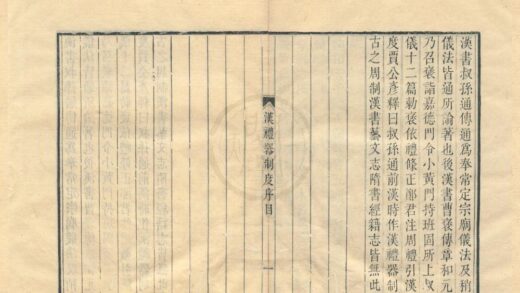 漢書叔孫通傳通爲奉常定宗廟儀法及稍
儀法皆通所論著也後漢書曹褒傳章和元
乃召褒詣嘉德門令小黃門持班固所上叔
儀十二篇勅褒依禮條正鄭君注周禮引漢
度賈公彥釋曰叔孫通前漢時作漢禮器制
古之周制漢書藝文志隋書經籍志皆無此
漢禮器制度序目
一